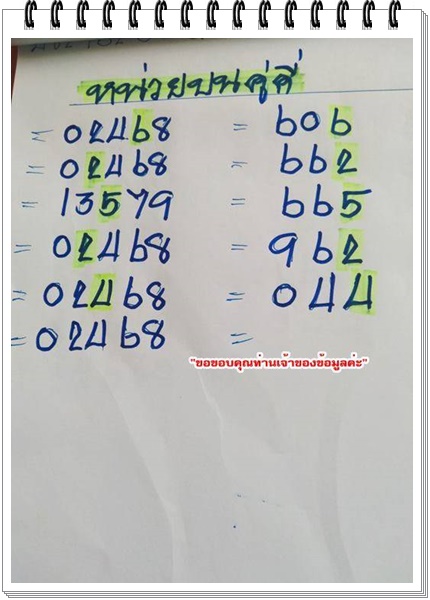 หน่วยบนคู่คี่
= 02468 = 606
= 02468 = 662
= 13579 = 665
= 02468 = 962
= 02468 = 044
= 02468 =
"ขอขอบคุณท่านเจ้าของข้อมูลค่ะ"